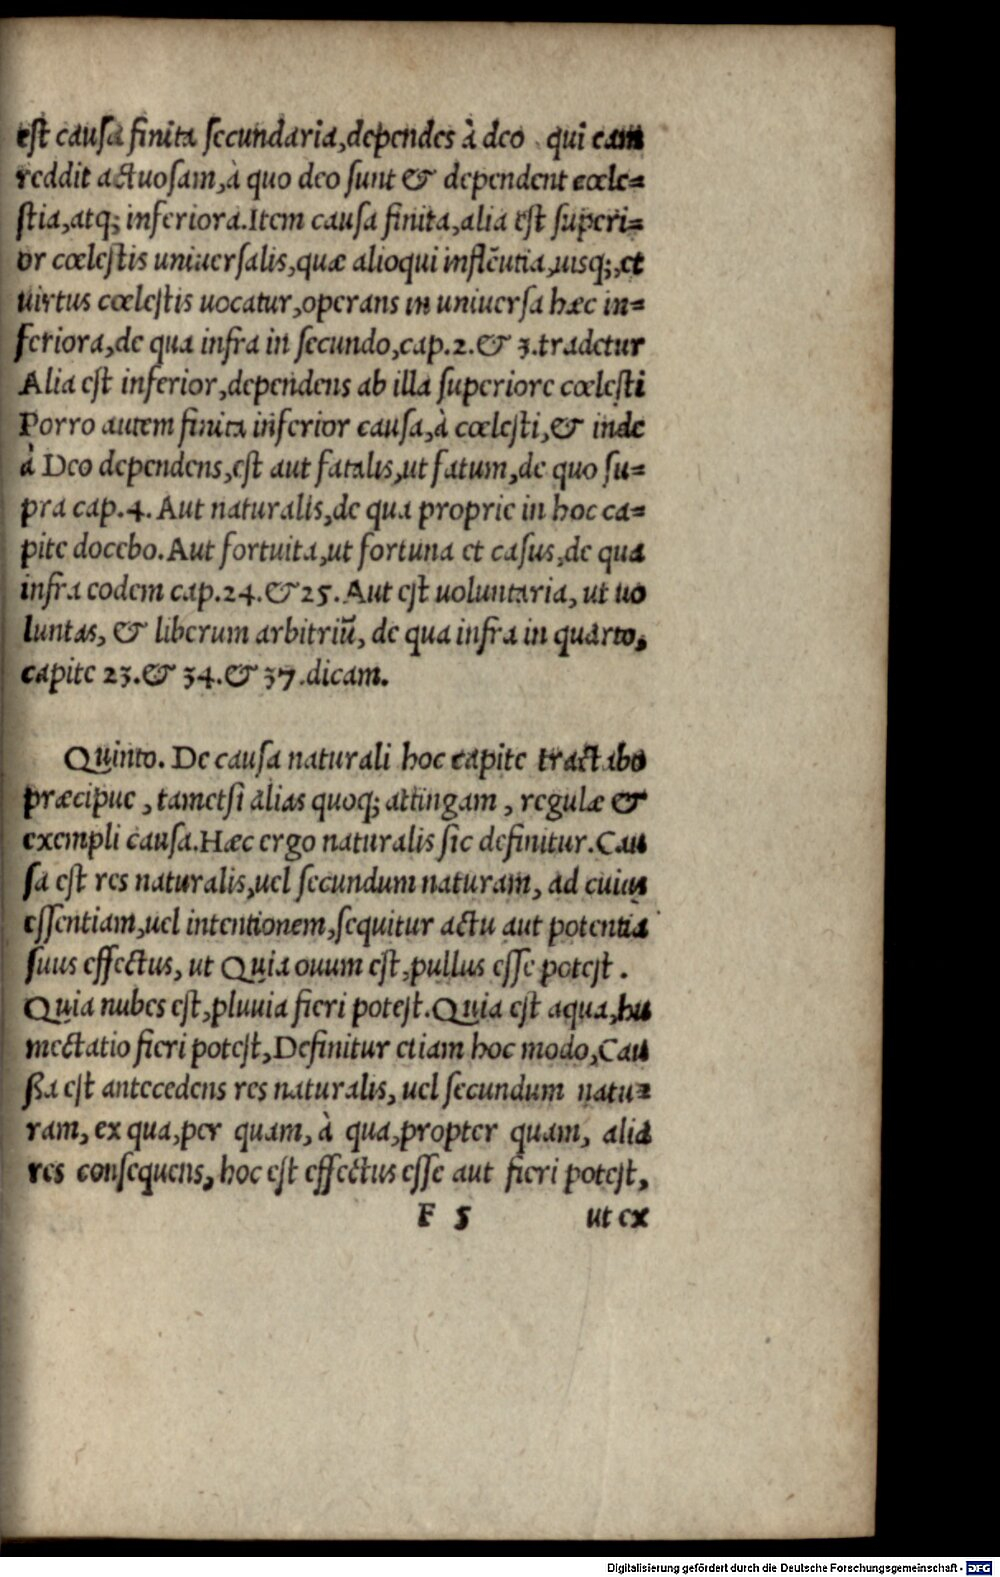 est causa finita secundaria,dependes à deo qui eam
reddit actuosam,à quo deo sunt & dependent cœle=
stia,atq; inferiora.Item causa finita,alia est superi=
or cœlestis uniuersalis,quæ alioqui inflẽutia,uisq;,et
uirtus cœlestis uocatur,operans in uniuersa hæc in=
feriora,de qua infra in secundo,cap.2.& 3.tradetur
Alia est inferior,dependens ab illa superiore cœlesti
Porro autem finita inferior causa,à cœlesti,& inde
à Deo dependens,est aut fatalis,ut fatum,de quo su=
pra cap.4. Aut naturalis,de qua proprie in hoc ca=
pite docebo.Aut fortuita,ut fortuna et casus,de qua
infra eodem cap.24.& 25.Aut est uoluntaria, ut uo
luntas, & liberum arbitriũ, de qua infra in quarto,
capite 23.& 34.& 37.dicam.
Quinto. De causa naturali hoc capite tractabo
præcipue, tametsi alias quoq; attingam, regulæ &
exempli causa.Hæc ergo naturalis sic definitur.Cau
sa est res naturalis,uel secundum naturam, ad cuius
essentiam,uel intentionem,sequitur actu aut potentia
suus effectus, ut Quia ouum est,pullus esse potest.
Quia nubes est,pluuia fieri potest.Quia est aqua,hu
mectatio fieri potest,Definitur etiam hoc modo,Cau
ßa est antecedens res naturalis, uel secundum natu=
ram, ex qua,per quam, à qua,propter quam, alia
res consequens, hoc est effectus esse aut fieri potest,
F 5 ut ex
Digitalisierung gefördert durch die Deutsche Forschungsgemeinschaft - DFG